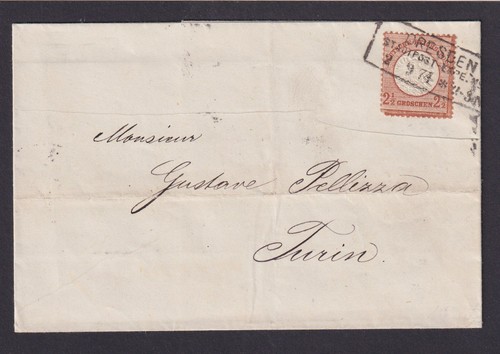 DRESDEN
9 74
2½ GROSCHEN 2½
Monsieur
Gustave Pellizza
Turin.